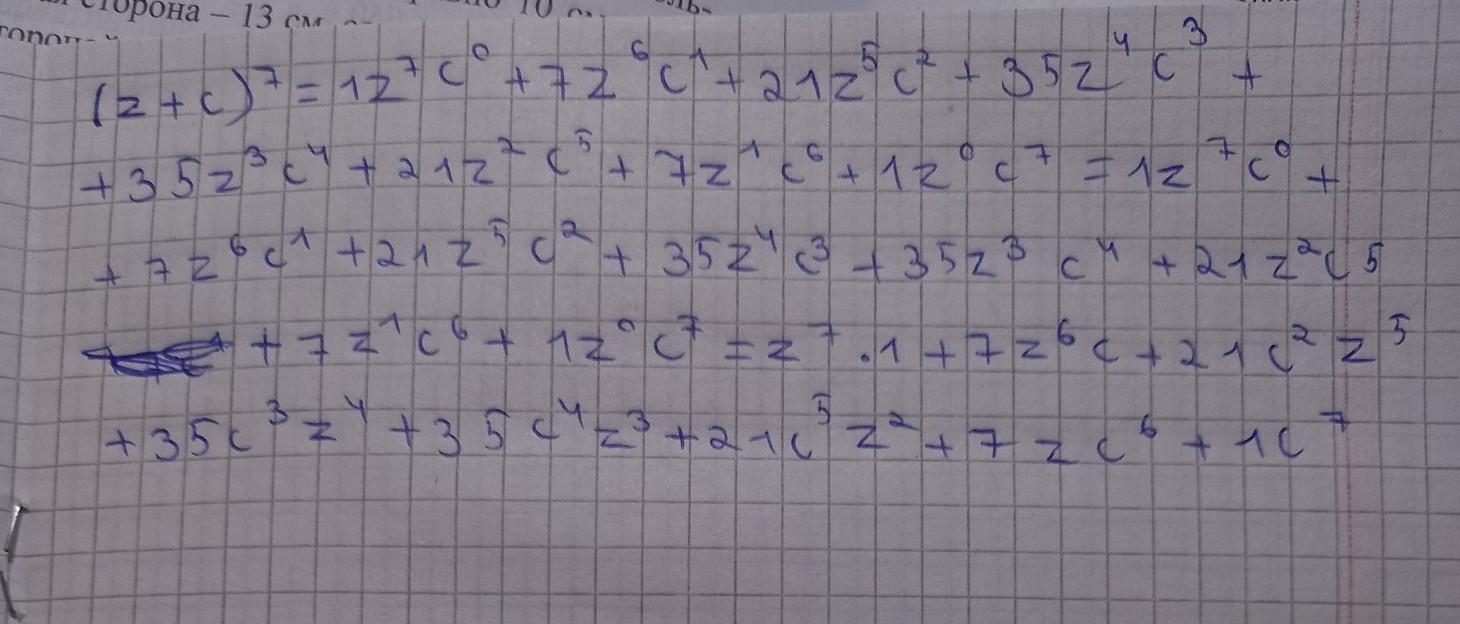 сторона – 13 см
(z+c)⁷ = 1z⁷c⁰ + 7z⁶c¹ + 21z⁵c² + 35z⁴c³ +
+ 35z³c⁴ + 21z²c⁵ + 7z¹c⁶ + 1z⁰c⁷ = 1z⁷c⁰ +
+ 7z⁶c¹ + 21z⁵c² + 35z⁴c³ + 35z³c⁴ + 21z²c5
+ 7z¹c⁶ + 1z⁰c⁷ = z⁷·1 + 7z⁶c + 21c²z⁵
+ 35c³z⁴ + 35c⁴z³ + 21c⁵z² + 7zc⁶ + 1c⁷